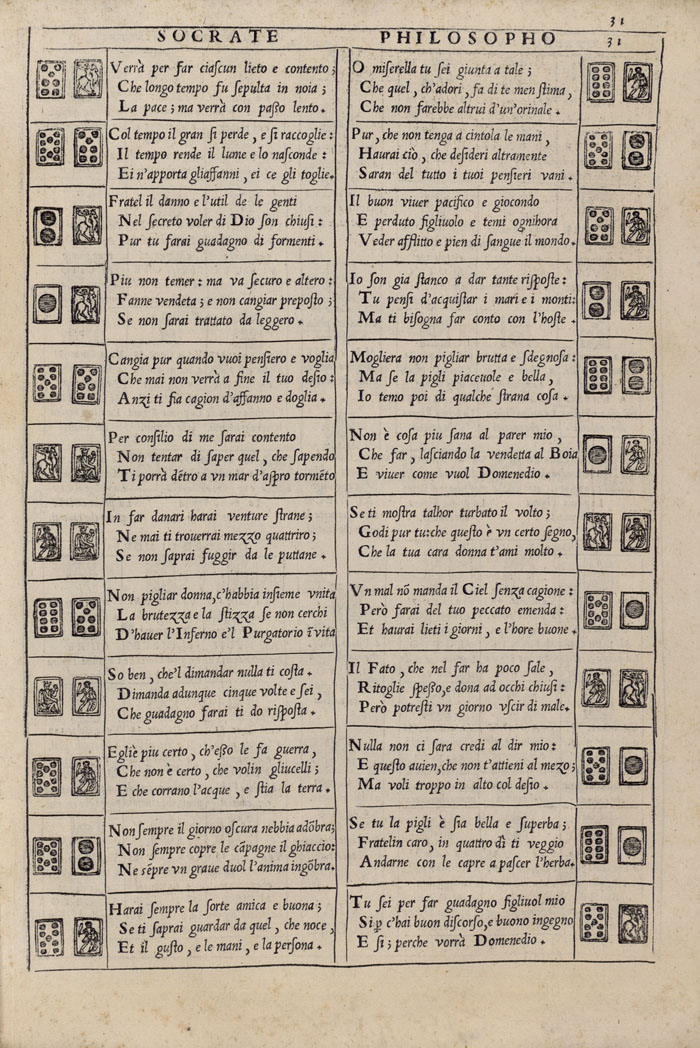 31
SOCRATE PHILOSOPHO 31
Verrà per far ciascun lieto e contento;
Che longo tempo fu sepulta in noia;
La pace; ma verrà con paßo lento.
Col tempo il gran si perde, e si raccoglie:
Il tempo rende il lume e lo nasconde:
Ei n'apporta gliaffanni, ei ce gli toglie.
Fratel il danno e l'util de le genti
Nel secreto voler di Dio son chiusi:
Pur tu farai guadagno di formenti.
Piu non temer: ma va securo e altero:
Fanne vendeta; e non cangiar preposto;
Se non sarai trattato da leggero.
Cangia pur quando vuoi pensiero e voglia
Che mai non verrà a fine il tuo desio:
Anzi ti fia cagion d'affanno e doglia.
Per consilio di me sarai contento
Non tentar di saper quel, che sapendo
Ti porrà dẽtro a vn mar d'aspro tormẽto
In far danari harai venture strane;
Ne mai ti trouerrai mezzo quattriro;
Se non saprai fuggir da le puttane.
Non pigliar donna, c'habbia insieme vnita
La brutezza e la stizza se non cerchi
D'hauer l'Inferno e'l Purgatorio ĩ vita
So ben, che'l dimandar nulla ti costa.
Dimanda adunque cinque volte e sei,
Che guadagno farai ti do risposta.
Egliè piu certo, ch'eßo le fa guerra,
Che non è certo, che volin gliucelli;
E che corrano l'acque, e stia la terra.
Non sempre il giorno oscura nebbia adõbra;
Non sempre copre le cãpagne il ghiaccio:
Ne sẽpre vn graue duol l'anima ingõbra.
Harai sempre la sorte amica e buona;
Se ti saprai guardar da quel, che noce,
Et il gusto, e le mani, e la persona.
O miserella tu sei giunta a tale;
Che quel, ch'adori, fa di te men stima,
Che non farebbe altrui d'un'orinale.
Pur, che non tenga a cintola le mani,
Haurai ciò, che desideri altramente
Saran del tutto i tuoi pensieri vani.
Il buon viuer pacifico e giocondo
E perduto figliuolo e temi ognihora
Veder afflitto e pien di sangue il mondo.
Io son gia stanco a dar tante risposte:
Tu pensi d'acquistar i mari e i monti:
Ma ti bisogna far conto con l'hoste.
Mogliera non pigliar brutta e sdegnosa:
Ma se la pigli piaceuole e bella,
Io temo poi di qualche strana cosa.
Non è cosa piu sana al parer mio,
Che far, lasciando la vendetta al Boia
E viuer come vuol Domenedio.
Se ti mostra talhor turbato il volto;
Godi pur tu: che questo è vn certo segno,
Che la tua cara donna t'ami molto.
Vn mal nõ manda il Ciel senza cagione:
Però farai del tuo peccato emenda:
Et haurai lieti i giorni, e l'hore buone.
Il Fato, che nel far ha poco sale,
Ritoglie speßo, e dona ad occhi chiusi:
Però potresti vn giorno vscir di male.
Nulla non ci sara credi al dir mio:
E questo auien, che non t'attieni al mezo;
Ma voli troppo in alto col desio.
Se tu la pigli è sia bella e superba;
Fratelin caro, in quattro dì ti veggio
Andarne con le capre a pascer l'herba.
Tu sei per far guadagno figliuol mio
Si c'hai buon discorso, e buono ingegno
E si; perche vorrà Domenedio.